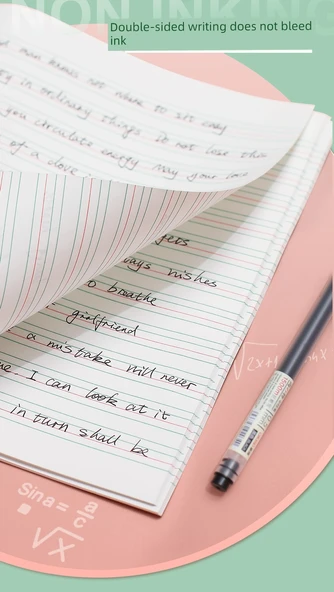 NON INKING
Double-sided writing does not bleed
ink
man knows not where to sit easy
in ordinary things it not lose
you circulate energy may your
of a dove
ways wishes
breathe
girlfriend
a mistake will never
I can look at it
in turn shall be
√2x+1
Sina= a/c
√x